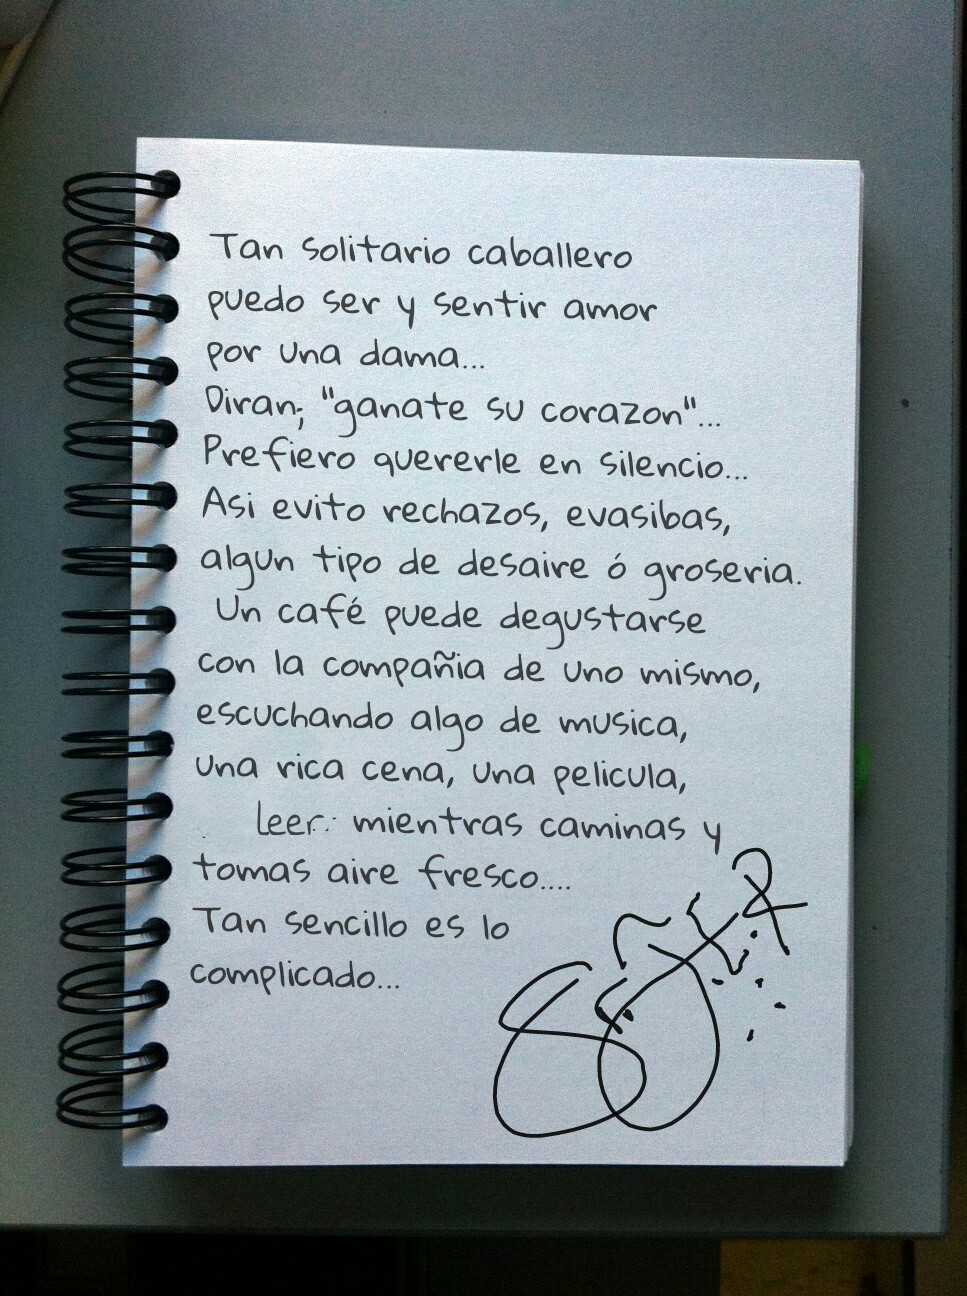 Tan solitario caballero
puedo ser y sentir amor
por una dama...
Diran; "ganate su corazon"...
Prefiero quererle en silencio...
Asi evito rechazos, evasibas,
algun tipo de desaire ó groseria.
Un café puede degustarse
con la compañia de uno mismo,
escuchando algo de musica,
una rica cena, una pelicula,
leer mientras caminas y
tomas aire fresco....
Tan sencillo es lo
complicado...